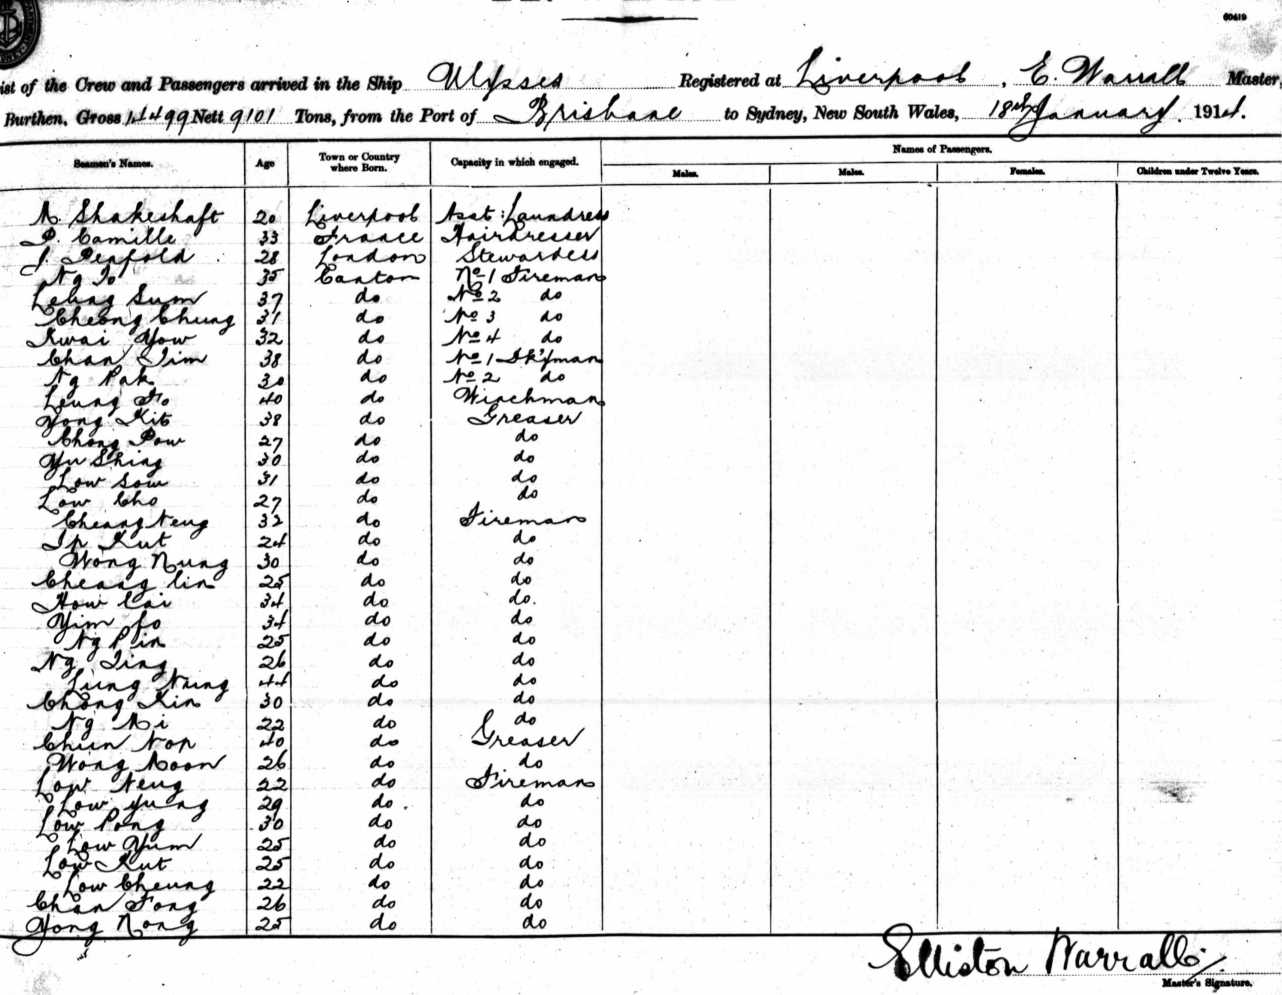 60419
ist of the Crew and Passengers arrived in the Ship Ulysses Registered at Liverpool, E. Warrall Master,
Burthen, Gross 14499 Nett 9101 Tons, from the Port of Brisbane to Sydney, New South Wales, 18th January 1914.
Seamen's Names. Age Town or Country where Born. Capacity in which engaged. Names of Passengers.
Males. Males. Females. Children under Twelve Years.
A. Shakeshaft 20 Liverpool Asst: Laundress
P. Camille 33 France Hairdresser
J. Penfold 28 London Stewardess
Ng To 35 Canton No 1 Fireman
Leung Sum 37 do No 2 do
Cheong Chung 31 do No 3 do
Kwai Yow 32 do No 4 do
Chan Tim 38 do No 1 Sk'man
Ng Pak 30 do No 2 do
Leung Fo 40 do Winchman
Yong Kit 38 do Greaser
Chong Pow 27 do do
Yu Shing 30 do do
Low Sow 31 do do
Low Cho 27 do do
Cheang Neng 32 do Fireman
Ip Kut 24 do do
Wong Nung 30 do do
Cheang Lin 25 do do
How Cai 34 do do.
Yim Fo 34 do do
Ng Pin 25 do do
Ng Ting 26 do do
Lung Nung 44 do do
Chong Kin 30 do do
Ng Mi 22 do do
Chun Nop 40 do Greaser
Wong Moon 26 do do
Low Neng 22 do Fireman
Low Yung 29 do do
Low Pong 30 do do
Low Yum 25 do do
Low Kut 25 do do
Low Cheung 22 do do
Chan Fong 26 do do
Yong Nong 25 do do
Elliston Warrall
Master's Signature.